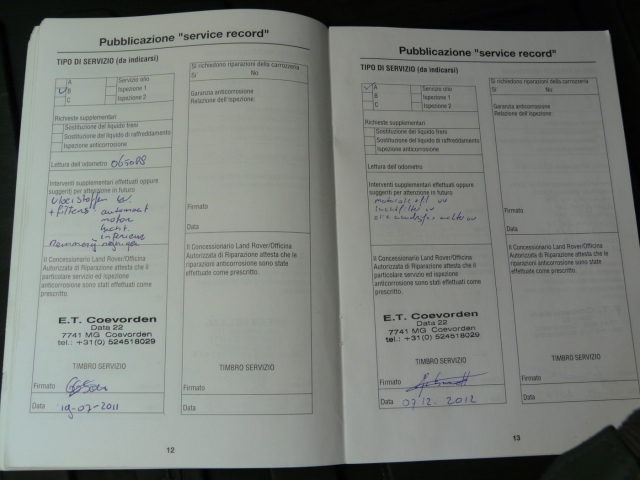 Pubblicazione "service record"
TIPO DI SERVIZIO (da indicarsi)
A
B
C
Servizio olio
Ispezione 1
Ispezione 2
Richieste supplementari
Sostituzione del liquido freni
Sostituzione del liquido di raffreddamento
Ispezione anticorrosione
Lettura dell'odometro
Interventi supplementari effettuati oppure
suggeriti per attenzione in futuro
Vloeistoffen
+ filters automaat
motor
lucht.
interieur
Remmen reinigen
Il Concessionario Land Rover/Officina
Autorizzata di Riparazione attesta che il
particolare servizio ed ispezione
anticorrosione sono stati effettuati come
prescritto.
E.T. Coevorden
Data 22
7741 MG Coevorden
tel.: +31(0) 524518029
TIMBRO SERVIZIO
Firmato
Data 19-07-2011
Si richiedono riparazioni della carrozzeria
Si No
Garanzia anticorrosione
Relazione dell'ispezione:
Firmato
Data
Il Concessionario Land Rover/Officina
Autorizzata di Riparazione attesta che le
riparazioni anticorrosione sono state
effettuate come prescritto.
TIMBRO SERVIZIO
Firmato
Data
12
Pubblicazione "service record"
TIPO DI SERVIZIO (da indicarsi)
A
B
C
Servizio olio
Ispezione 1
Ispezione 2
Richieste supplementari
Sostituzione del liquido freni
Sostituzione del liquido di raffreddamento
Ispezione anticorrosione
Lettura dell'odometro
Interventi supplementari effettuati oppure
suggeriti per attenzione in futuro
Il Concessionario Land Rover/Officina
Autorizzata di Riparazione attesta che il
particolare servizio ed ispezione
anticorrosione sono stati effettuati come
prescritto.
E.T. Coevorden
Data 22
7741 MG Coevorden
tel.: +31(0) 524518029
TIMBRO SERVIZIO
Firmato
Data 07.12.2012
Si richiedono riparazioni della carrozzeria
Si No
Garanzia anticorrosione
Relazione dell'ispezione:
Firmato
Data
Il Concessionario Land Rover/Officina
Autorizzata di Riparazione attesta che le
riparazioni anticorrosione sono state
effettuate come prescritto.
TIMBRO SERVIZIO
Firmato
Data
13